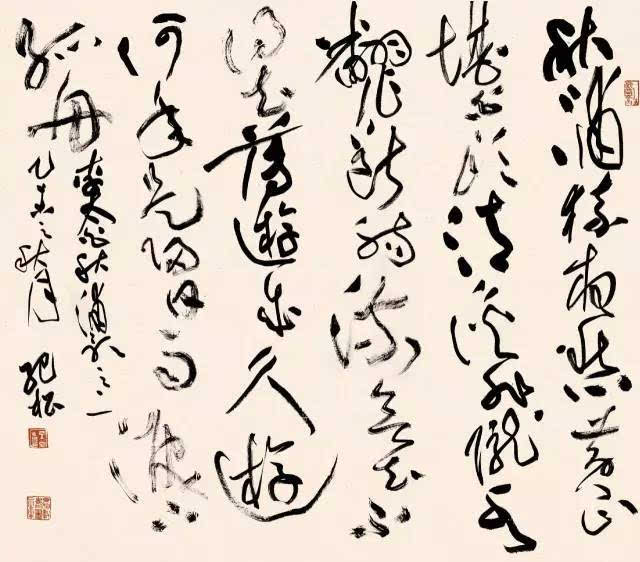 秋浦猿夜愁黄山
堪白头清溪非陇水
翻作断肠流欲去不
得去薄遊成久遊
何年是归日雨泪下
孤舟 李白秋浦歌之二
乙未之秋月